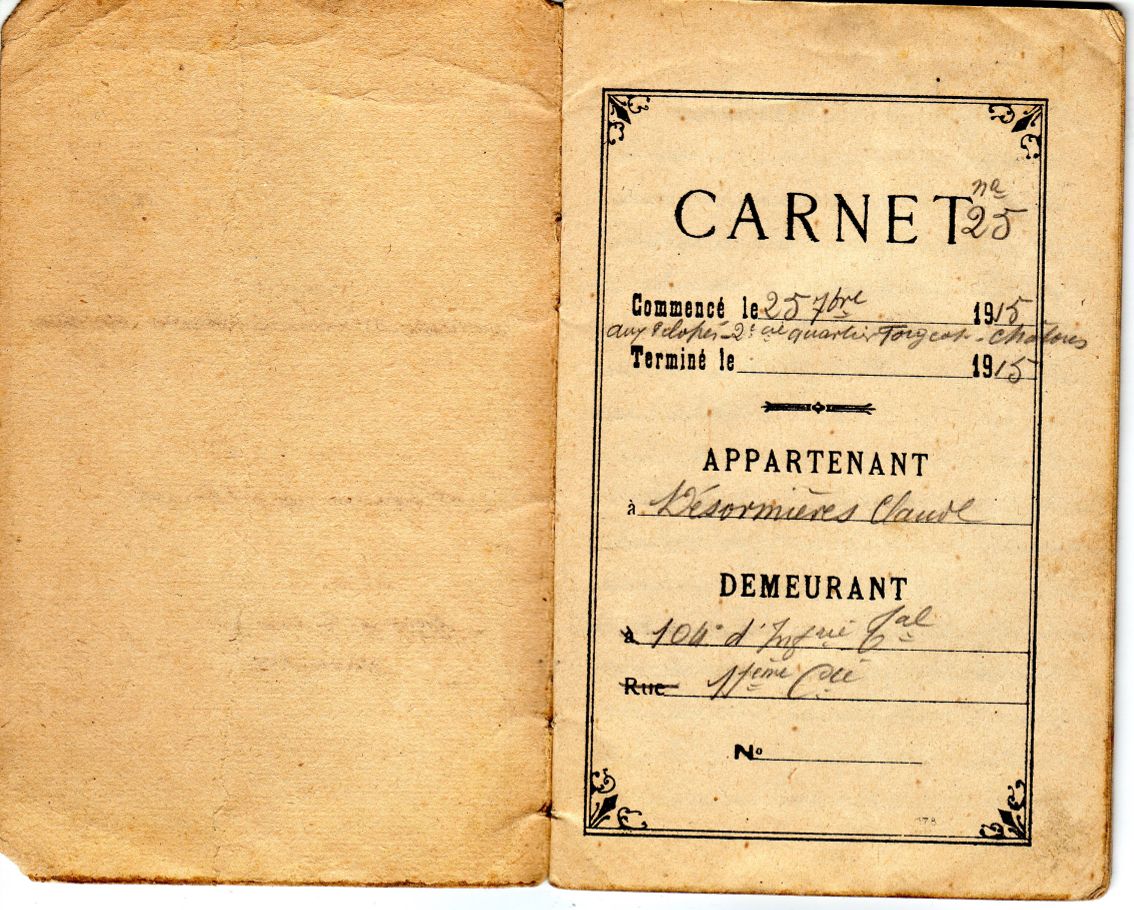 CARNET nº 25
Commencé le 25 7bre 1915
aux Eclopés - 2e Cie quartier Forgeot - Châlons
Terminé le 1915
APPARTENANT
à Désormières Claude
DEMEURANT
à 104e d'Infrie Tal
Rue 11ème Cie
Nº
178